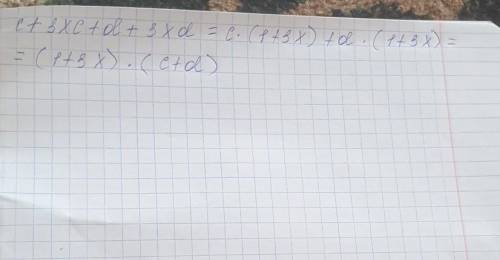 c + 3xc + d + 3xd = c · (1+3x) + d · (1+3x) =
= (1+3x) · (c+d)